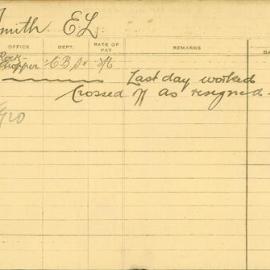 Smith E L
OFFICE DEPT. RATE OF PAY REMARKS DA
Rock
Chopper C B Sr Last day worked
Crossed off as resigned